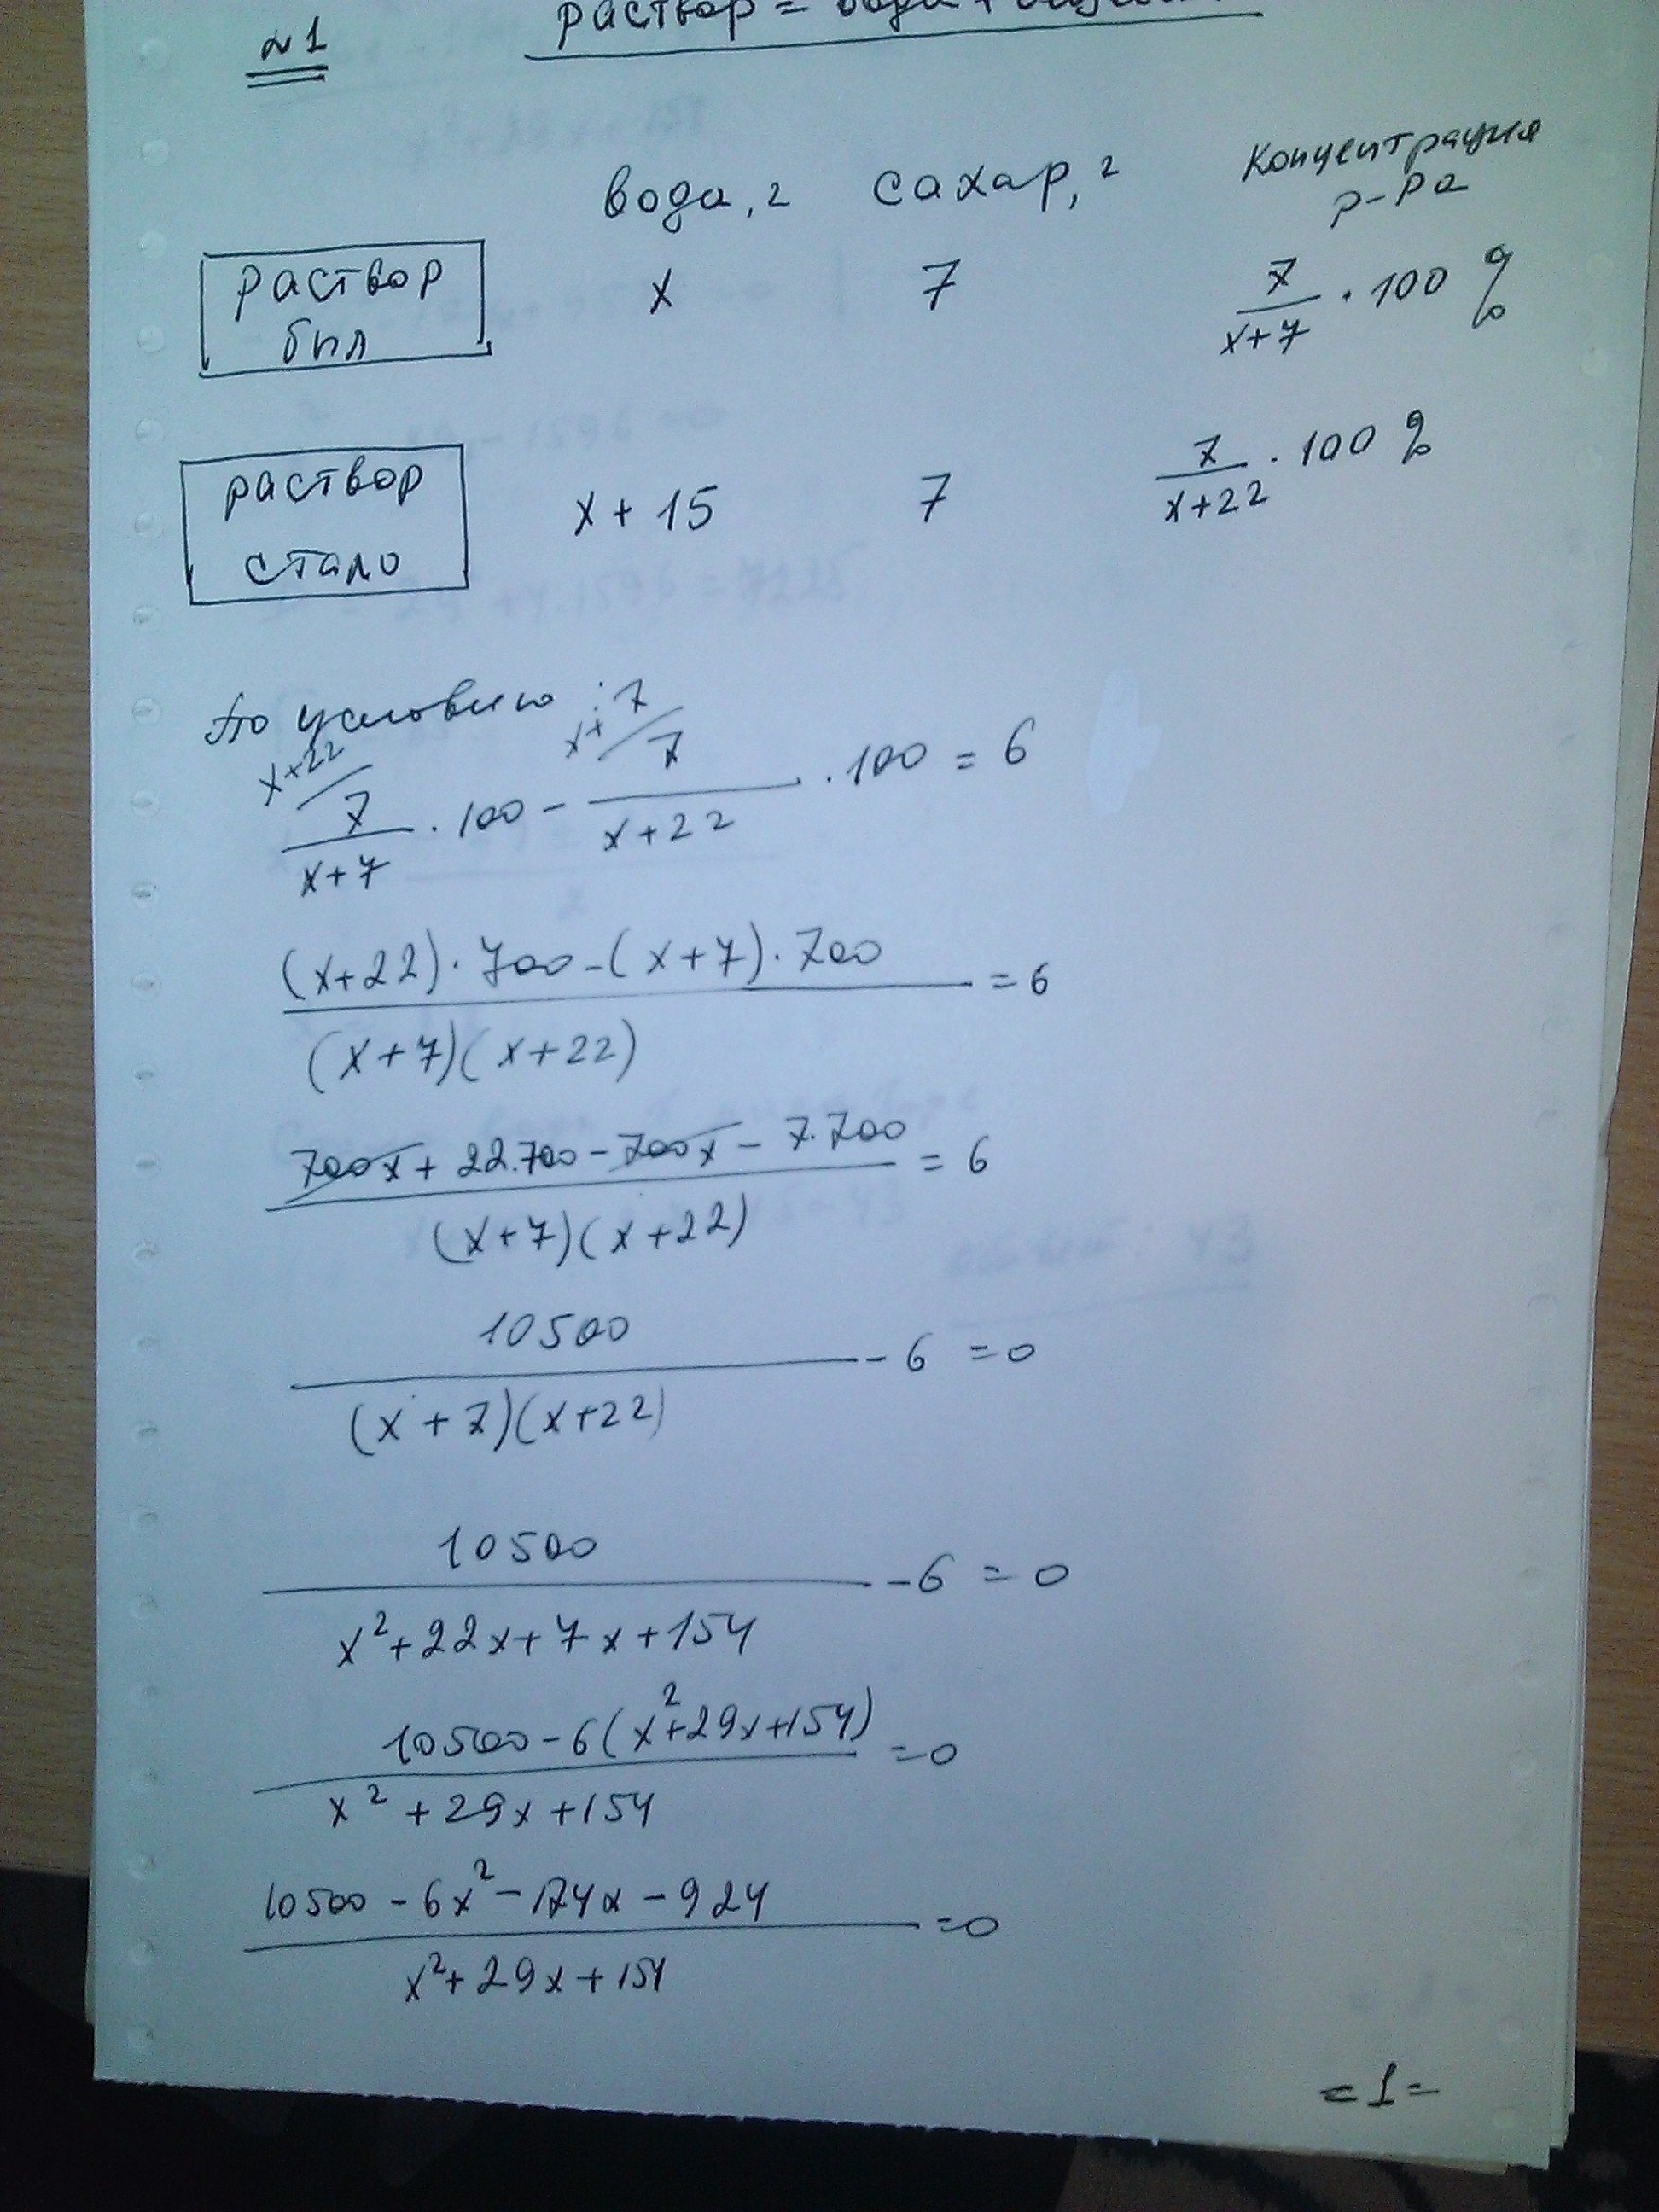 №1
раствор = вода +
вода, г сахар, г Концентрация р-ра
раствор был x 7 7/(x+7) · 100 %
раствор стало x + 15 7 7/(x+22) · 100 %
По условию :
x+22/ 7/(x+7) · 100 - x+7/ 7/(x+22) · 100 = 6
((x+22) · 700 - (x+7) · 700)/((x+7)(x+22)) = 6
(700x + 22.700 - 700x - 7.700)/((x+7)(x+22)) = 6
10500/((x+7)(x+22)) - 6 = 0
10500/(x²+22x+7x+154) - 6 = 0
(10500 - 6(x²+29x+154))/(x²+29x+154) = 0
(10500 - 6x² - 174x - 924)/(x²+29x+154) = 0
= 1 =